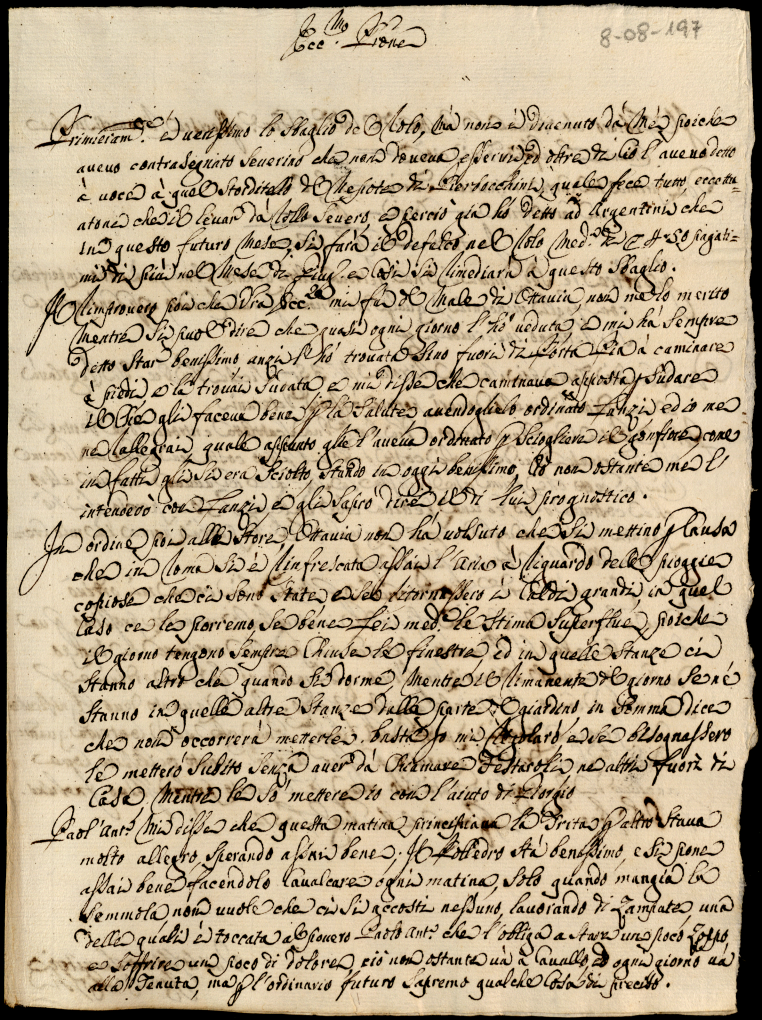 Ecc.mo Prone
8-08-197
Primieram.te è verissimo lo Sbaglio del Rolo, mà non è divenuto dà Mè, poiche
avevo contrasegnato Severino che non doveva esservi, ed oltre di Ciò l'avevo detto
à voce à quel Storditello del Nepote di Pierbocchini, quale fece tutto, eccettu-
atone che il levar dà Rollo Severo, e perciò già hò detto ad Argentini che
In questo futuro Mese, si farà il defalco nel Rolo Med.mo di 50 pagati-
mi di più nel Mese di Lug.o e Così si rimediarà à questo Sbaglio.
Il rimprovero poi che Vra Ecc.za mi fà del Male di Ottavia, non me lo merito
Mentre Si può dire che quasi ogni giorno l'hò veduta, e mi hà Sempre
detto Star benissimo anzi l'hò trovata Sino fuori di Porta Pia à caminare
à piedi, e la trovai Sudata e mi disse che caminava apposta p Sudare
il Che gli faceva bene p la Salute avendoglielo ordinato Lanzi, ed io me
ne rallegrai, quale appunto glie l'aveva ordinato p Sciogliere il gonfiore, come
in fatti gli si era Sciolto, stando in oggi benissimo, Ciò non ostante me l'
intenderò con Lanzi e gli Saprò dire il di lui prognostico.
In ordine poi alle Store Ottavia non hà voluto che Si mettino p Causa
che in Roma Si è rinfrescata assai l'Aria à riguardo delle pioggie
copiose che ci Sono State, e Se ritornassero i Caldi grandi, in quel
Caso ce le porremo Se bene Lei med.ma le Stima Superflue, poiche
il giorno tengono Sempre Chiuse le finestre, ed in quelle Stanze ci
Stanno altro che quando Si dorme, Mentre il rimanente del giorno Se nè
Stanno in quelle altre Stanze dalla parte del giardino in Somma dice
che non occorrerà metterle, basta Io mi regolarò e Se bisognassero
le metterò Subito Senza aver dà Chiamare Festaroli, ne altri fuori di
Casa, Mentre le sò mettere io con l'aiuto di Giorgio
Paol'Ant.o Mi disse che questa matina principiava la Trita, p altro Stava
molto allegro, Sperando assai bene. Il Polledro Stà benissimo, e Si pone
assai bene facendolo Cavalcare ogni matina, Solo quando mangia la
Semmola non vuole che ci Si accosti nessuno, lavorando di Zampate, una
delle quali è toccata al povero Paolo Ant.o che l'obliga a Stare un poco Zoppo,
e Soffrire un poco di dolore, ciò non ostante và à Cavallo, ed ogni giorno và
alla Tenuta, ma p l'ordinario futuro Sapremo qualche Cosa di preciso.